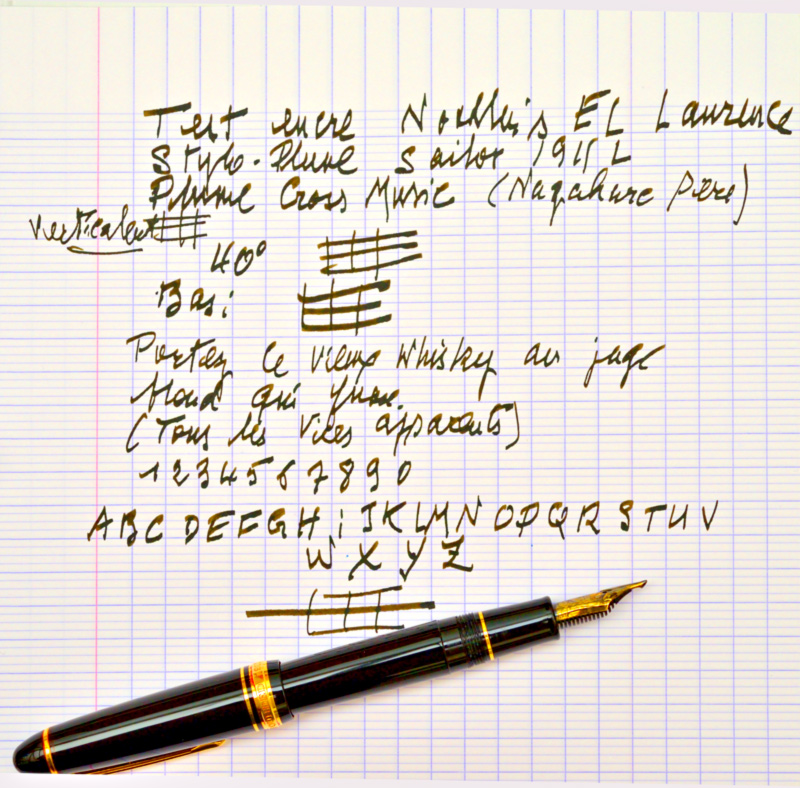 Test encre Noodler's EL Laurence
Stylo-Plume Sailor 1911 L
Plume Cross Music (Nagahare Père)
Verticalement
40°
Bas:
Portez le vieux Whisky au juge
blond qui fume.
(Tous les vices apparents)
1 2 3 4 5 6 7 8 9 0
A B C D E F G H i J K L M N O P Q R S T U V
W X Y Z